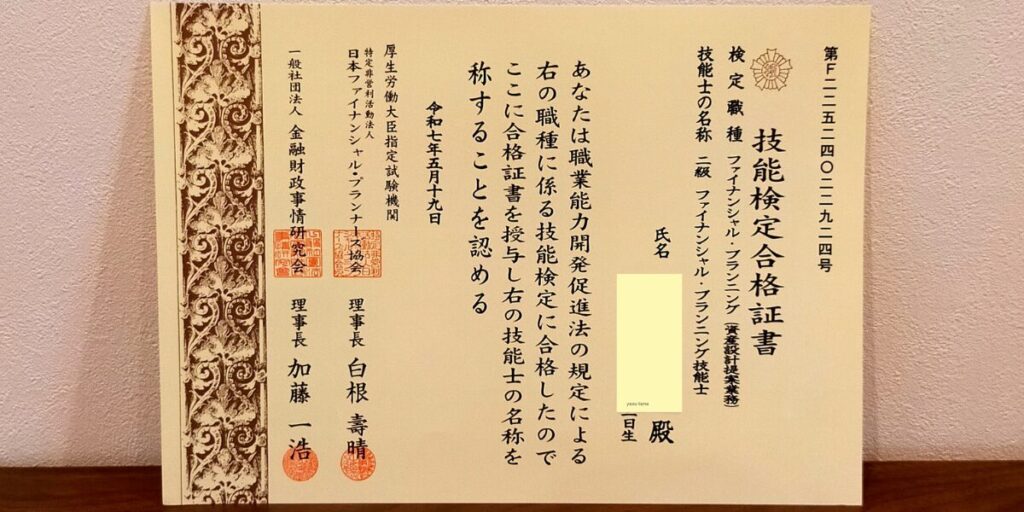 第F二二五二四〇二二九二四号
技能検定合格証書
検定職種 ファイナンシャル・プランニング(資産設計提案業務)
技能士の名称 二級 ファイナンシャル・プランニング技能士
氏名
殿
日生
yasu-tama
あなたは職業能力開発促進法の規定による
右の職種に係る技能検定に合格したので
ここに合格証書を授与し右の技能士の名称を
称することを認める
令和七年五月十九日
厚生労働大臣指定試験機関
特定非営利活動法人
日本ファイナンシャル・プランナーズ協会 理事長 白根 壽晴
一般社団法人 金融財政事情研究会 理事長 加藤 一浩